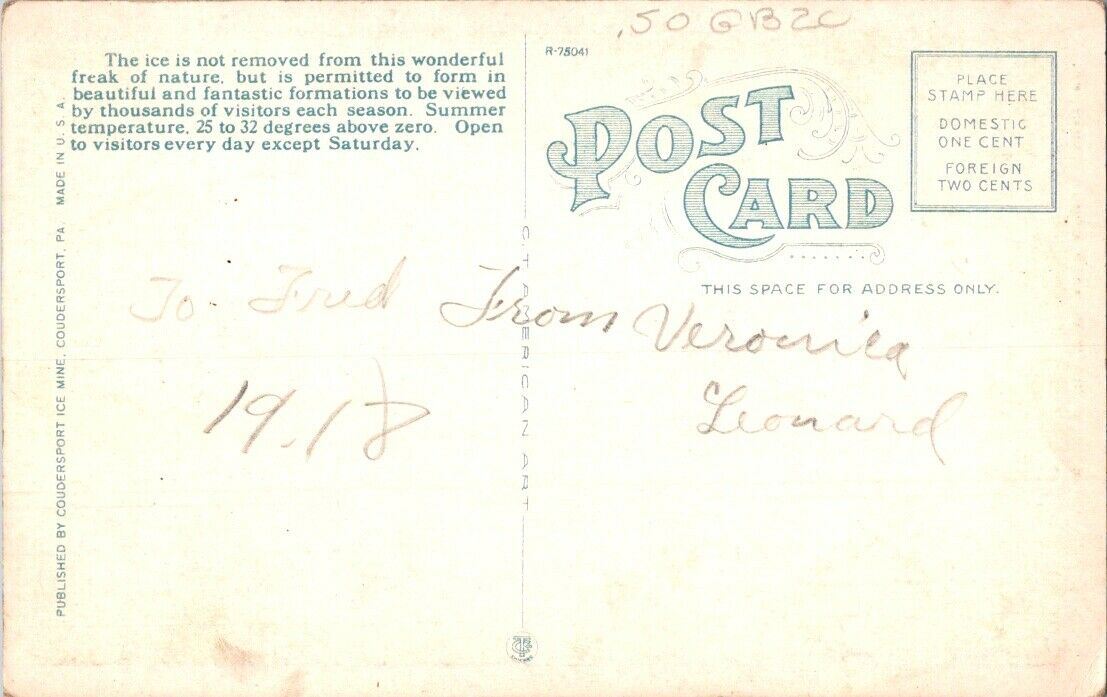 .50 GB2C
The ice is not removed from this wonderful
freak of nature, but is permitted to form in
beautiful and fantastic formations to be viewed
by thousands of visitors each season. Summer
temperature, 25 to 32 degrees above zero. Open
to visitors every day except Saturday.
PUBLISHED BY COUDERSPORT ICE MINE, COUDERSPORT, PA. MADE IN U. S. A.
R-75041
POST CARD
PLACE
STAMP HERE
DOMESTIC
ONE CENT
FOREIGN
TWO CENTS
THIS SPACE FOR ADDRESS ONLY.
C. T. AMERICAN ART
To Fred From Veronica
Leonard
19.18